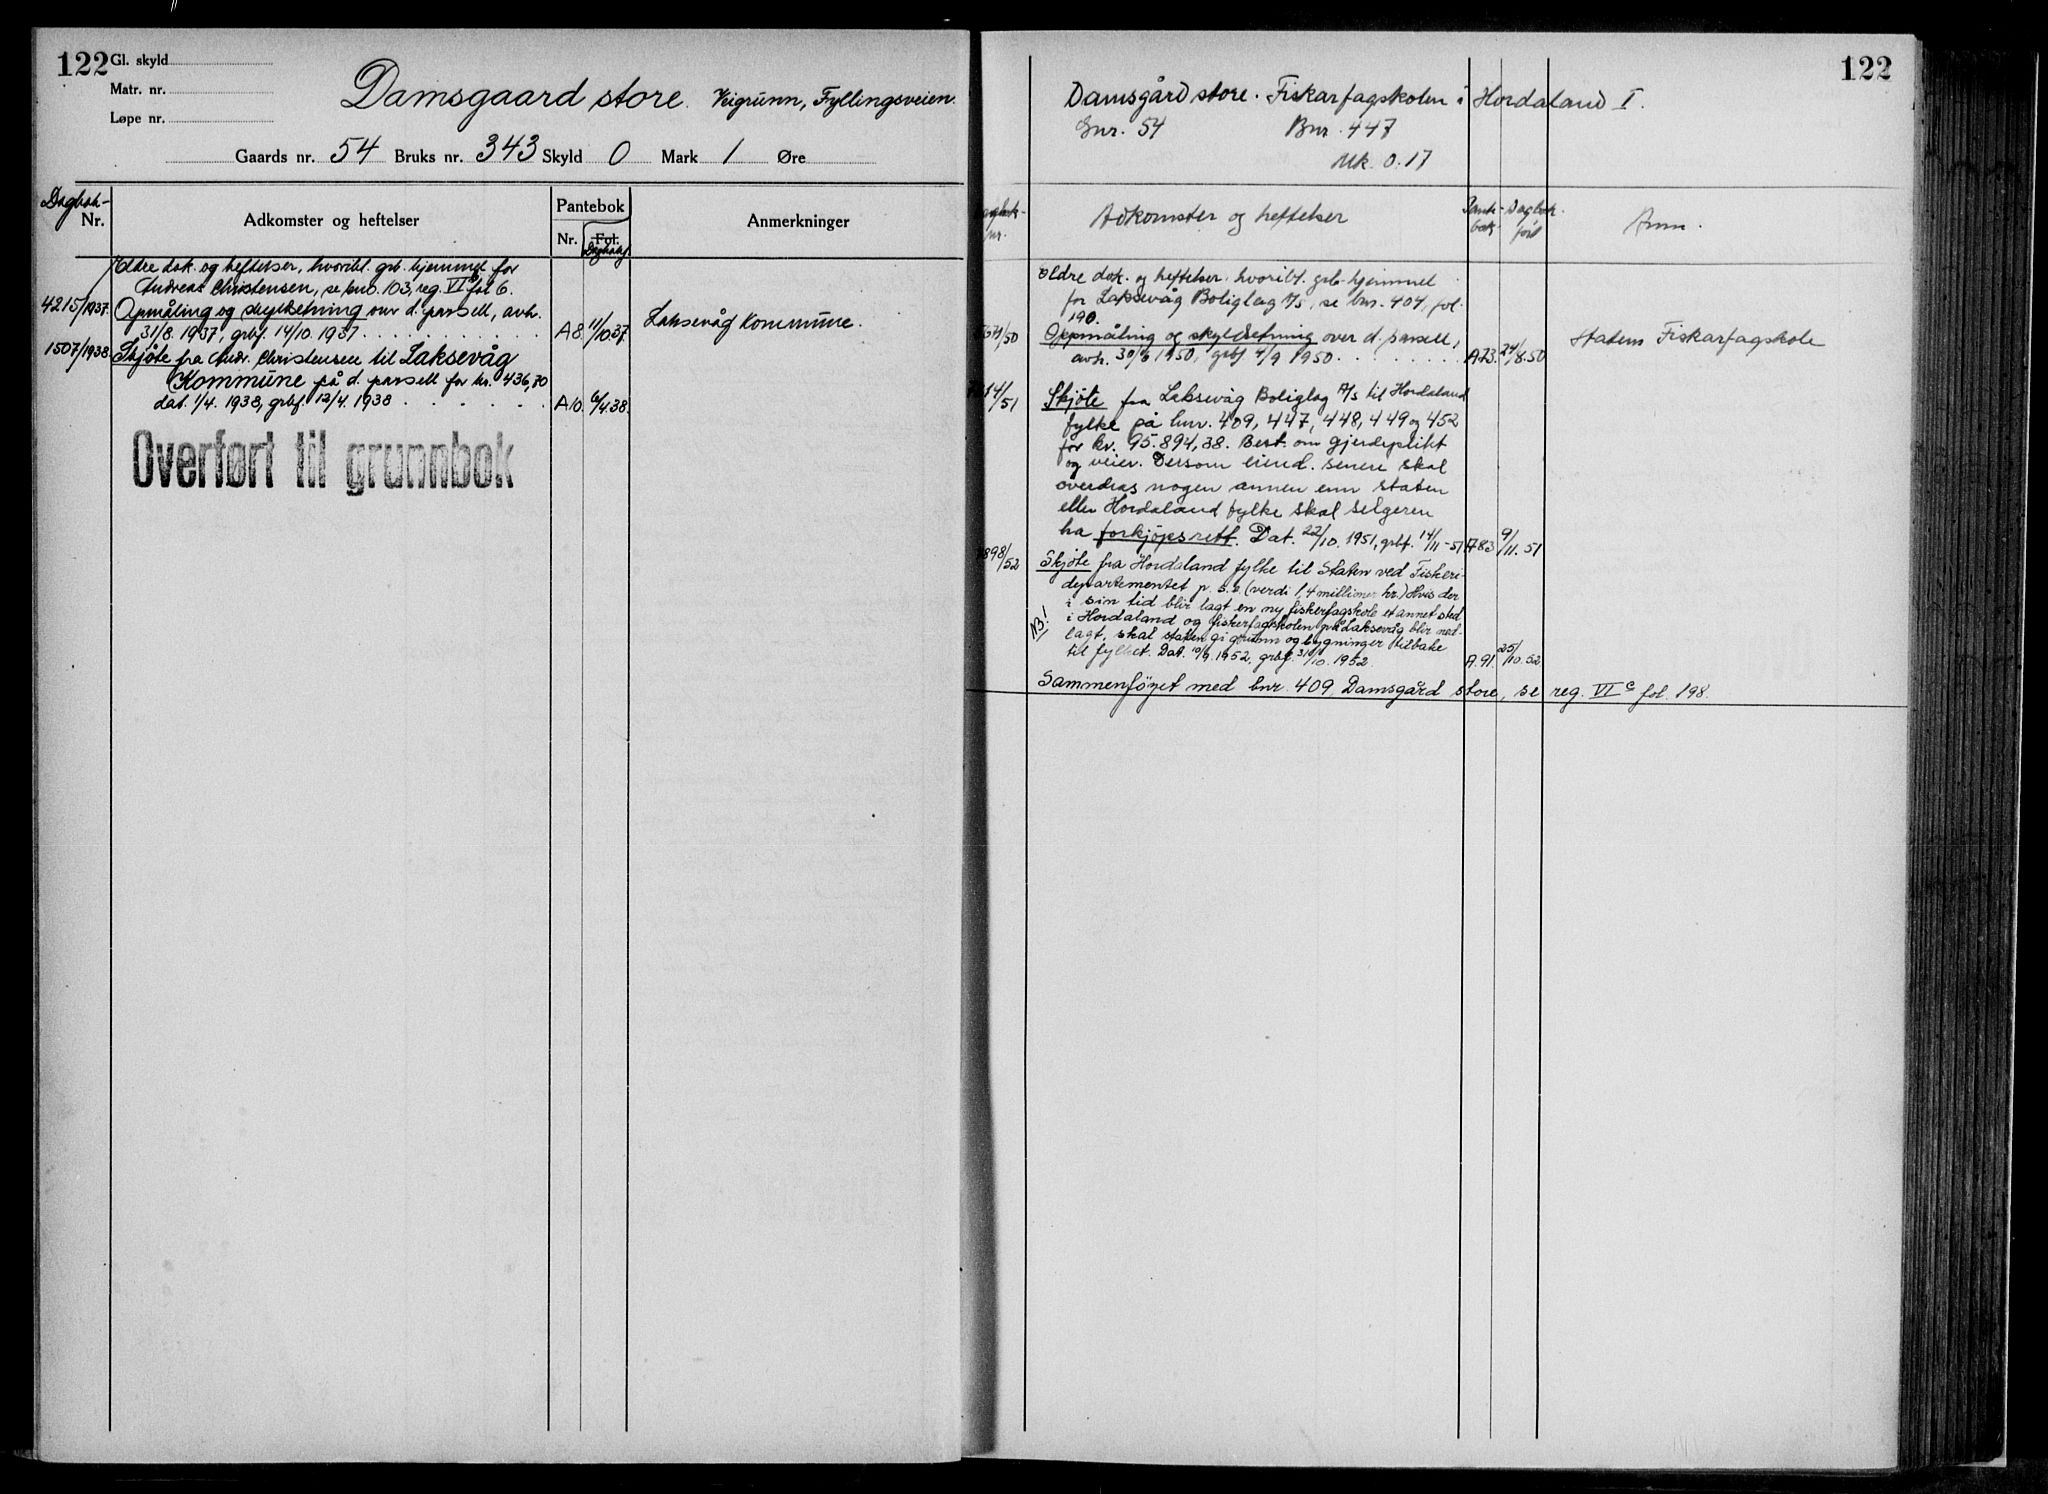 122
Gl. skyld
Matr. nr.
Løpe nr.
Damsgaard store. Veigrunn, Fyllingsveien.
Gaards nr. 54 Bruks nr. 343 Skyld 0 Mark 1 Øre
Dagbok-
Nr.
Adkomster og heftelser
Pantebok
Nr. Fol.
Dagbokf.
Anmerkninger
Eldre dok. og heftelser, hvoribl. grb. hjemmel for
Andreas Christensen, se bno. 103, reg. VI fol 6.
4215/1937. Opmåling og skyldsetning over d. parsell, avh.
31/8 1937, grbf. 14/10. 1937 A8 11/10 37. Laksevåg Kommune.
1507/1938. Skjöte fra Andr. Christensen til Laksevåg
Kommune på d. parsell for kr. 436,70
dat. 1/4. 1938, grbf. 12/4. 1938 A10. 6/4.38.
Overført til grunnbok
122
Damsgård store. Fiskarfagskolen i Hordaland I.
Gnr. 54 Bnr. 447
Mk. 0.17
nr.
Adkomster og heftelser
Pante-
bok
Dagbok.
förl
Anm.
Eldre dok. og heftelser. hvoribl. grb. hjemmel
for Laksevåg Boliglag A/S, se bnr. 404, fol.
190.
Oppmåling og skyldsetning over d. parsell,
avh. 30/6 1950, grbf 4/9 1950 A73. 24/8.50
Statens Fiskarfagskole
14/51 Skjöte fra Laksevåg Boliglag A/S til Hordaland
fylke på bnr. 409, 447, 448, 449 og 452
for kr. 95.894,38. Best. om gjerdeplikt
og veier. Dersom eiend. senere skal
overdras nogen annen enn staten
eller Hordaland fylke skal selgeren
ha forkjöpsrett. Dat. 22/10. 1951, grbf. 14/11-51 A83 9/11.51
898/52 Skjöte fra Hordaland fylke til Staten ved Fiskeri-
departementet p. s.e. (verdi 1,4 millioner kr.) Hvis der
i sin tid blir lagt en ny fiskerfagskole et annet sted
NB! i Hordaland og fiskerfagskolen på Laksevåg blir ned-
lagt, skal staten gi grunn og bygninger tilbake
til fylket. Dat. 10/9.1952, grbf. 31/10. 1952. A.91. 25/10.52
Sammenföyet med bnr. 409, Damsgård store, se reg. VI c fol. 198.